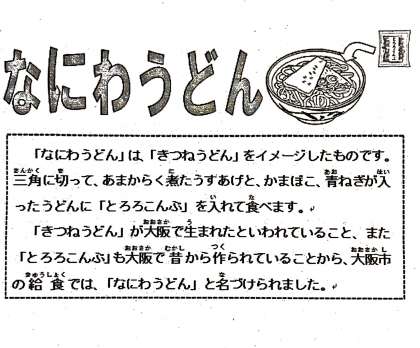 なにわうどん
「なにわうどん」は「きつねうどん」をイメージしたものです。
三角に切って、あまからく煮たうすあげと、かまぼこ、青ねぎが入
ったうどんに「とろろこんぶ」を入れて食べます。
「きつねうどん」が大阪で生まれたといわれていること、また
「とろろこんぶ」も大阪で昔から作られていることから、大阪市
の給食では、「なにわうどん」と名づけられました。